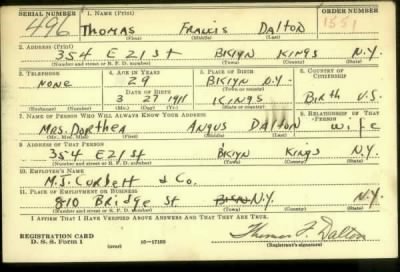 SERIAL NUMBER 1. NAME (Print) ORDER NUMBER
496 Thomas Francis Dalton 1551
(First) (Middle) (Last)
2. ADDRESS (Print)
354 E 21 St Bklyn Kings N.Y.
(Number and street or R. F. D. number) (Town) (County) (State)
3. TELEPHONE 4. AGE IN YEARS 5. PLACE OF BIRTH 6. COUNTRY OF CITIZENSHIP
None 29 Bklyn N.Y.
DATE OF BIRTH (Town) (County)
3 27 1911 Kings Birth U.S.
(Exchange) (Number) (Mo.) (Day) (Yr.) (State or country)
7. NAME OF PERSON WHO WILL ALWAYS KNOW YOUR ADDRESS 8. RELATIONSHIP OF THAT PERSON
Mrs. Dorthea Angus Dalton wife
(Mr., Mrs., Miss) (First) (Middle) (Last)
9. ADDRESS OF THAT PERSON
354 E 21 St Bklyn Kings N.Y.
(Number and street or R. F. D. number) (Town) (County) (State)
10. EMPLOYER'S NAME
M.J. Corbett & Co.
11. PLACE OF EMPLOYMENT OR BUSINESS
810 Bridge St N.Y. N.Y.
(Number and street or R. F. D. number) (Town) (County) (State)
I AFFIRM THAT I HAVE VERIFIED ABOVE ANSWERS AND THAT THEY ARE TRUE.
REGISTRATION CARD
D. S. S. Form 1 (over) 16—17105 Thomas F. Dalton
(Registrant's signature)